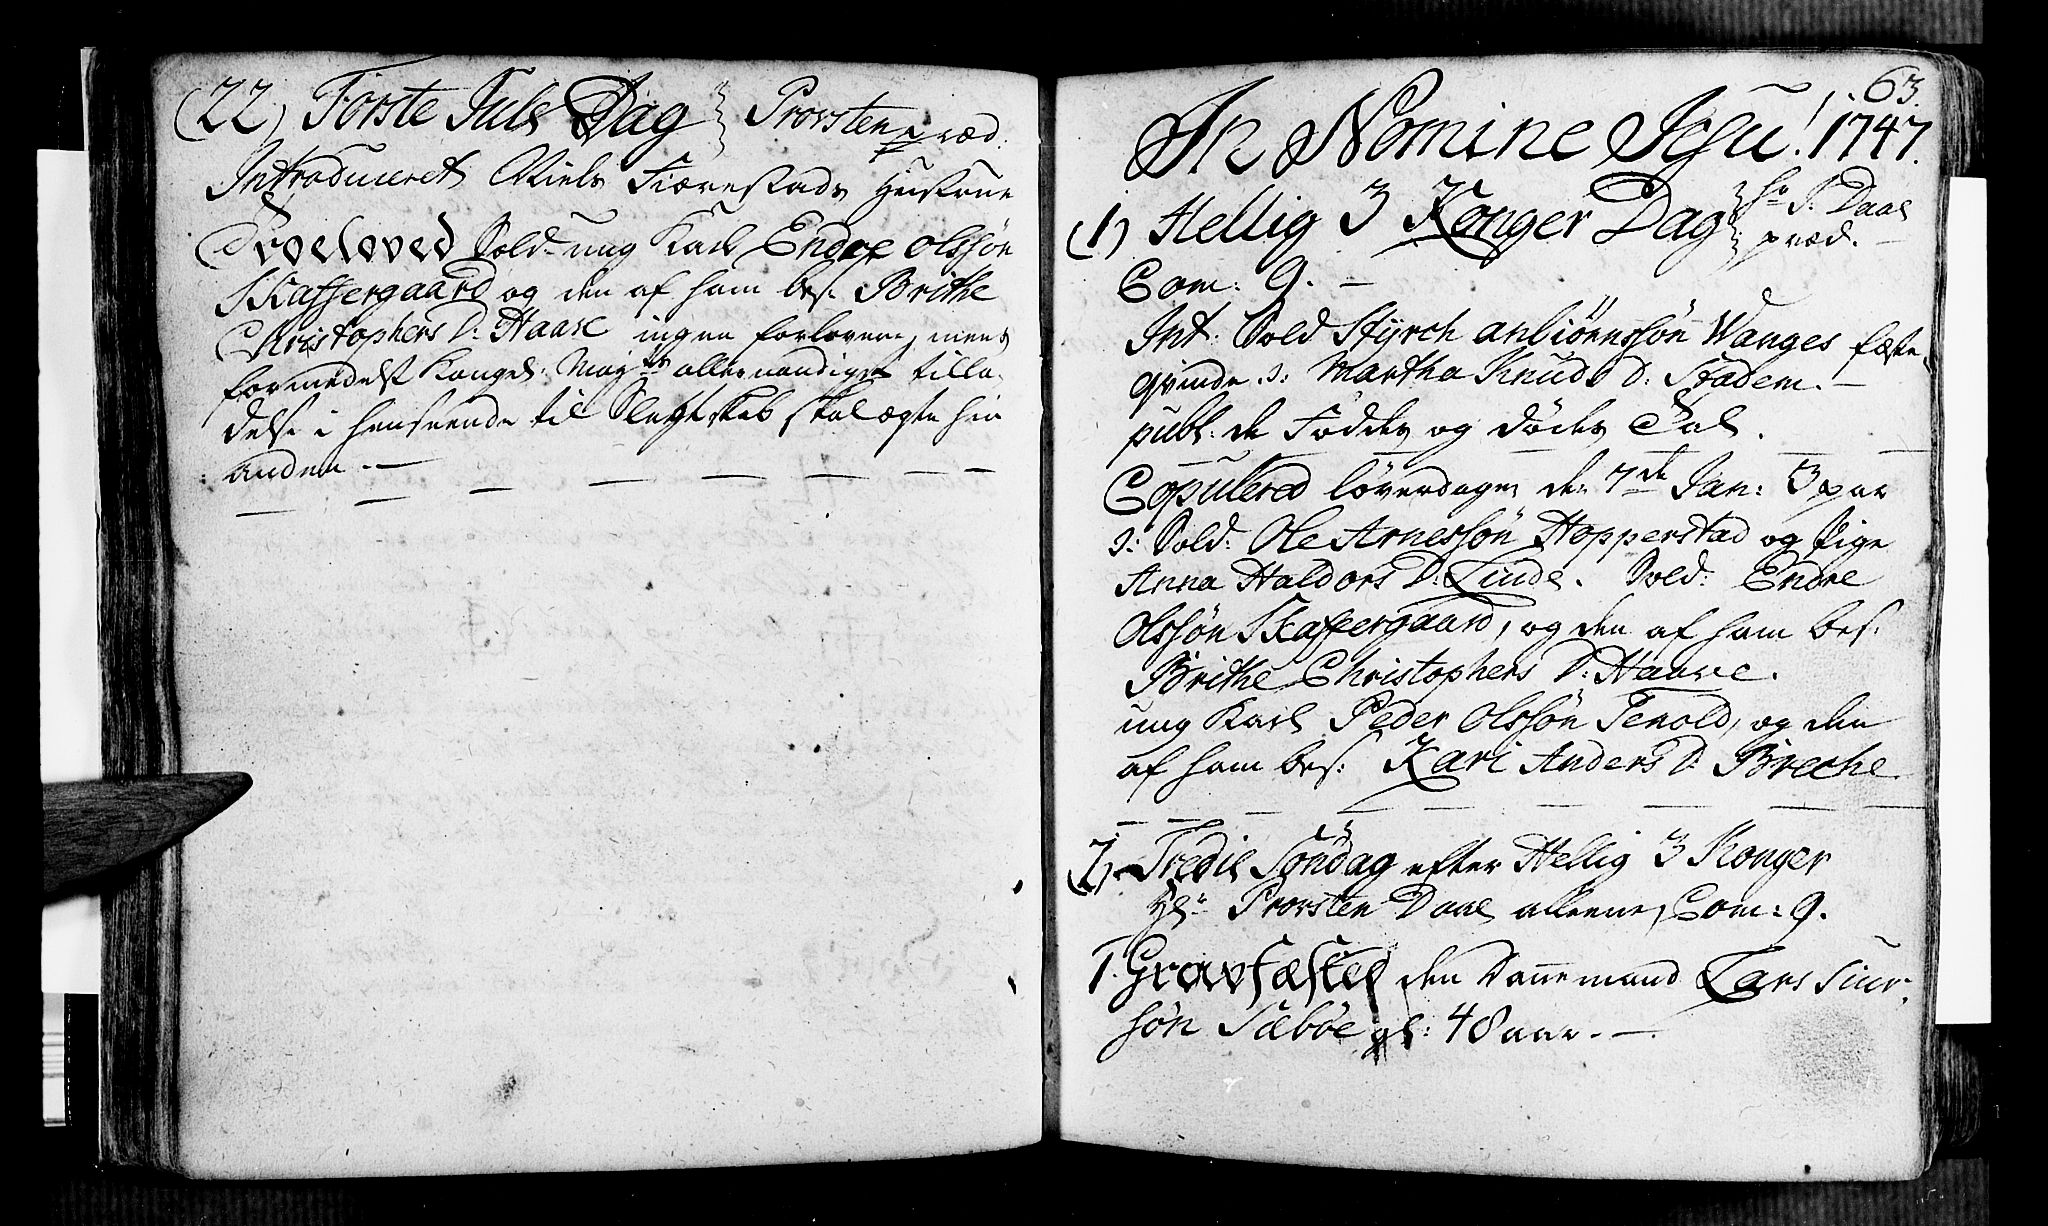 (22) Første Juls Dag Provsten præd:
Introduceret Niels Fierestads Hustrue
Troeloved Sold. ung Karl Endre Olssøn
Skaffergaard og den af ham bes: Brithe
Christophers D: Haave ingen forlovere, mens
formedelst Kongel: Mayts allernaadigste tilla-
delse i henseende til Slegtskab skal ægte hin
anden. —
63.
In Nomine Jesu! 1747.
(1) Hellig 3 Konger Dag Hr P: Daae
præd. —
Com: 9. —
Int: Sold Styrch anbiørnssøn Wanges fæste
qvinde. s: Martha Knuds D: Stadem. —
publ: deFøddes og dødes Tal.
Copulered løverdagen den 7de Jan: 3 par
s: Sold: Ole Arnessøn Hopperstad og Pige
Anna Haldors D: Linde. Sold: Endre
Olssøn Skaffergaard, og den af ham bes:
Brithe Christophers D: Haave.
ung Karl Peder Olssøn Tenold, og den
af ham bes: Kari Anders D: Breche.
(2) Tredie Søndag efter Hellig 3 Konger
Hr Provsten Daae allene, Com: 9.
T. Gravfæsted den Dannemand Lars Siur-
søn Sæbøe gl: 48 aar. —